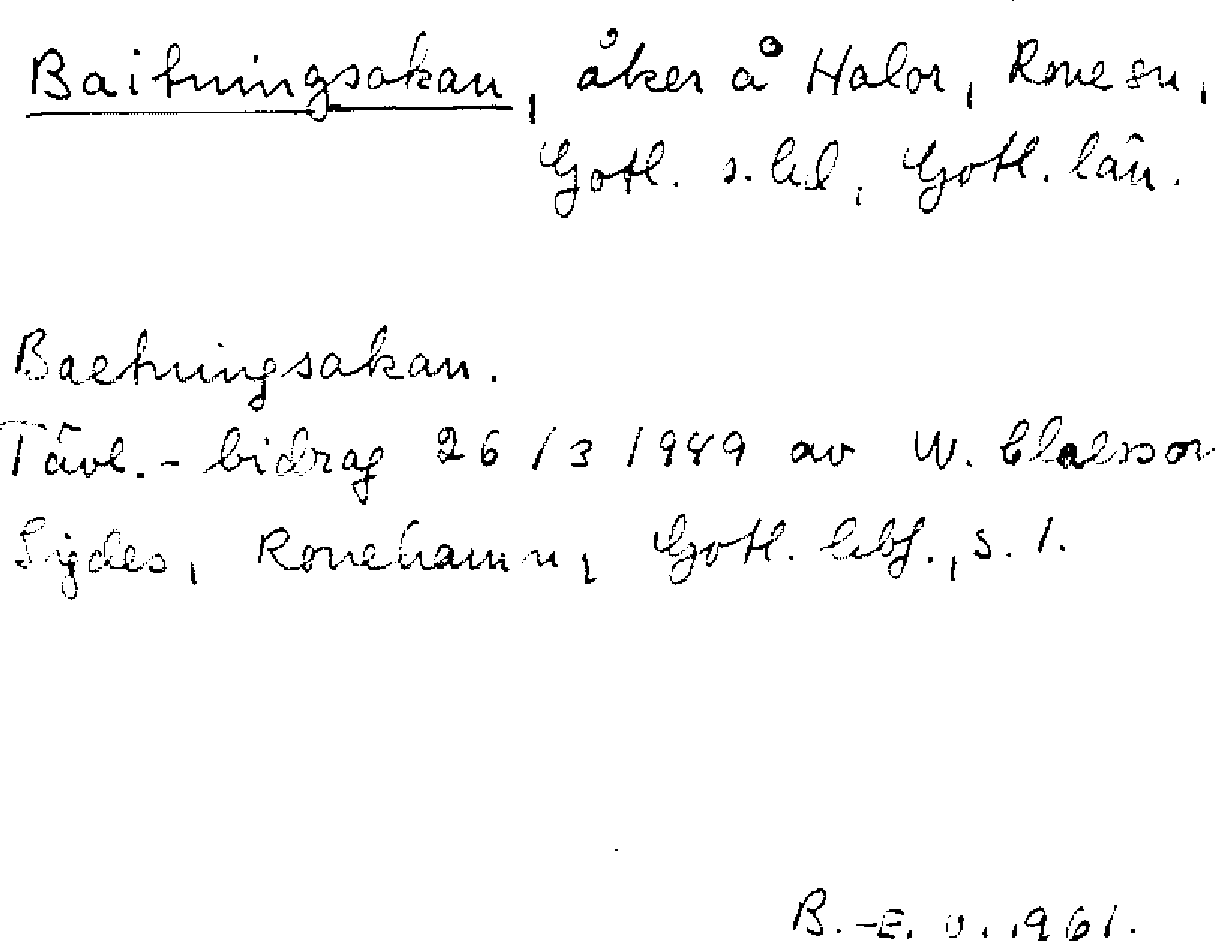 Baitningsakan, åker å Halor, Rone sn,
Gotl. s. hd, Gotl. län.
Baetningsakan.
Tävl.-bidrag 26/3 1949 av W. Claesson
Sigdes, Ronehamn, Gotl. hbf., s. 1.
B.-E. U. 1961.